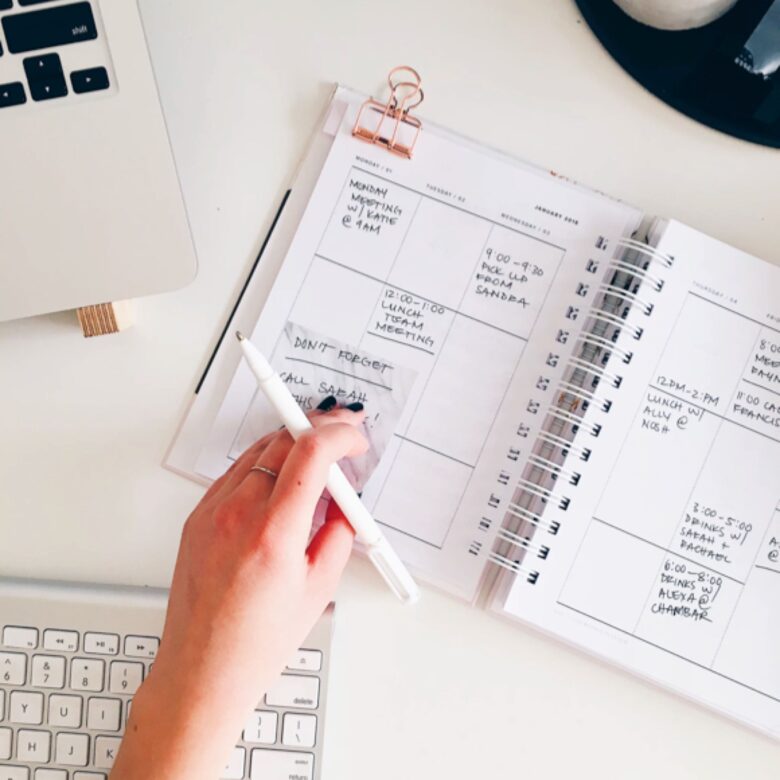 MONDAY / 01
TUESDAY / 02
JANUARY 2018
WEDNESDAY / 03
MONDAY
MEETING
W/ KATIE
@ 9AM
9:00-9:30
PICK UP
FROM
SANDRA
12:00-1:00
LUNCH
TEAM
MEETING
DON'T FORGET
CALL SARAH
THURSDAY / 04
12PM-2PM
LUNCH W/
ALLY @
NOSH
3:00-5:00
DRINKS W/
SARAH +
RACHAEL
6:00-8:00
DRINKS W/
ALEXA @
CHAMBAR
8:00
11:00
FRANCIS
shift
6
7
8
9
Y
U
I
H
J
K
delete
enter
return